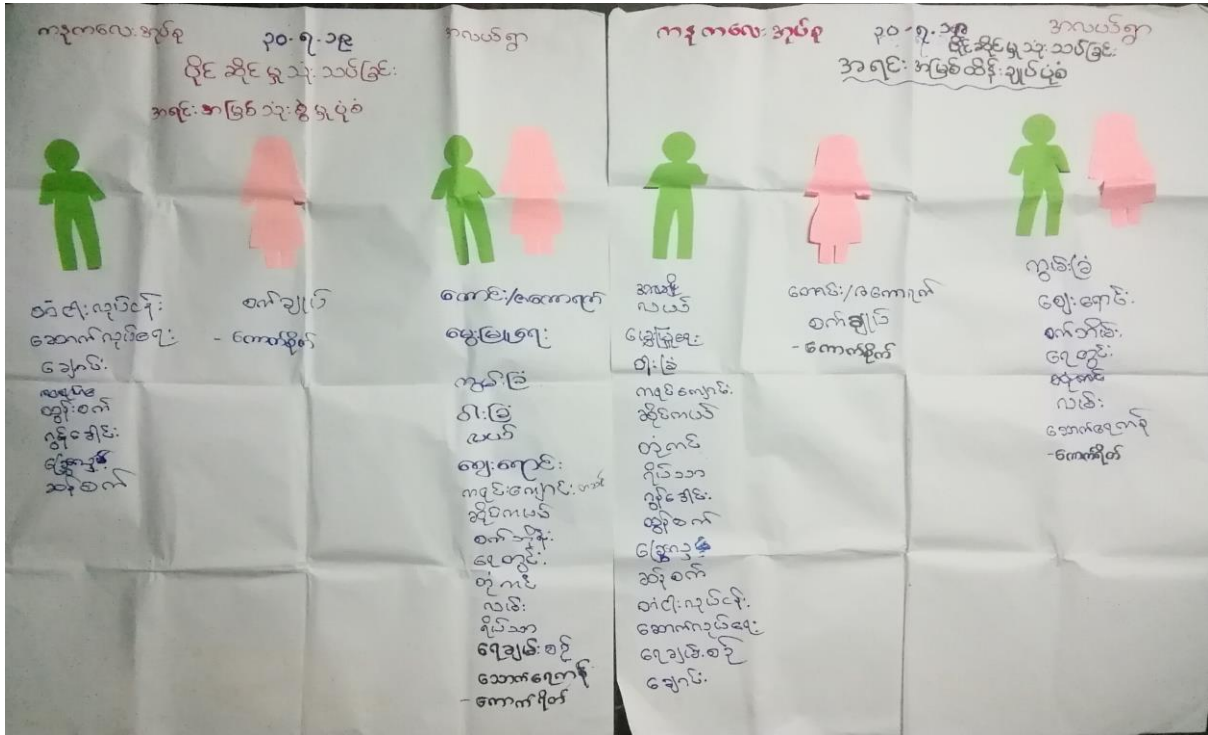 ကနုကလေးအုပ်စု ၃၀-၇-၁၉ အလယ်ရွာ
ပိုင်ဆိုင်မှုသုံးသပ်ခြင်း
အရင်းအမြစ်သုံးစွဲမှုပုံစံ
တံငါလုပ်ငန်း
ဆောက်လုပ်ရေး
ချောင်း
ထွန်စက်
ဆန်စက်
စက်ချုပ်
- ကောက်စိုက်
တောင်း/ဧကောရက်
မွေးမြူရေး
ကွမ်းခြံ
ဝါးခြံ
လယ်
ဈေးရောင်း
ဆိုင်ကယ်
စက်ဘီး
ရေတွင်း
တုံကင်
လမ်း
ရိပ်သာ
ရေချမ်းစဉ်
သောက်ရေကန်
- ကောက်ရိတ်
ကနုကလေးအုပ်စု ၃၀-၇-၁၉ အလယ်ရွာ
ပိုင်ဆိုင်မှုသုံးသပ်ခြင်း
အရင်းအမြစ်ထိန်းချုပ်ပုံစံ
လယ်
ဝါးခြံ
ဆိုင်ကယ်
တုံကင်
ရိပ်သာ
ထွန်စက်
ဆန်စက်
တံငါလုပ်ငန်း
ဆောက်လုပ်ရေး
ရေချမ်းစဉ်
ချောင်း
စက်ချုပ်
- ကောက်စိုက်
ကွမ်းခြံ
ဈေးရောင်း
စက်ဘီး
ရေတွင်း
လမ်း
သောက်ရေကန်
- ကောက်ရိတ်